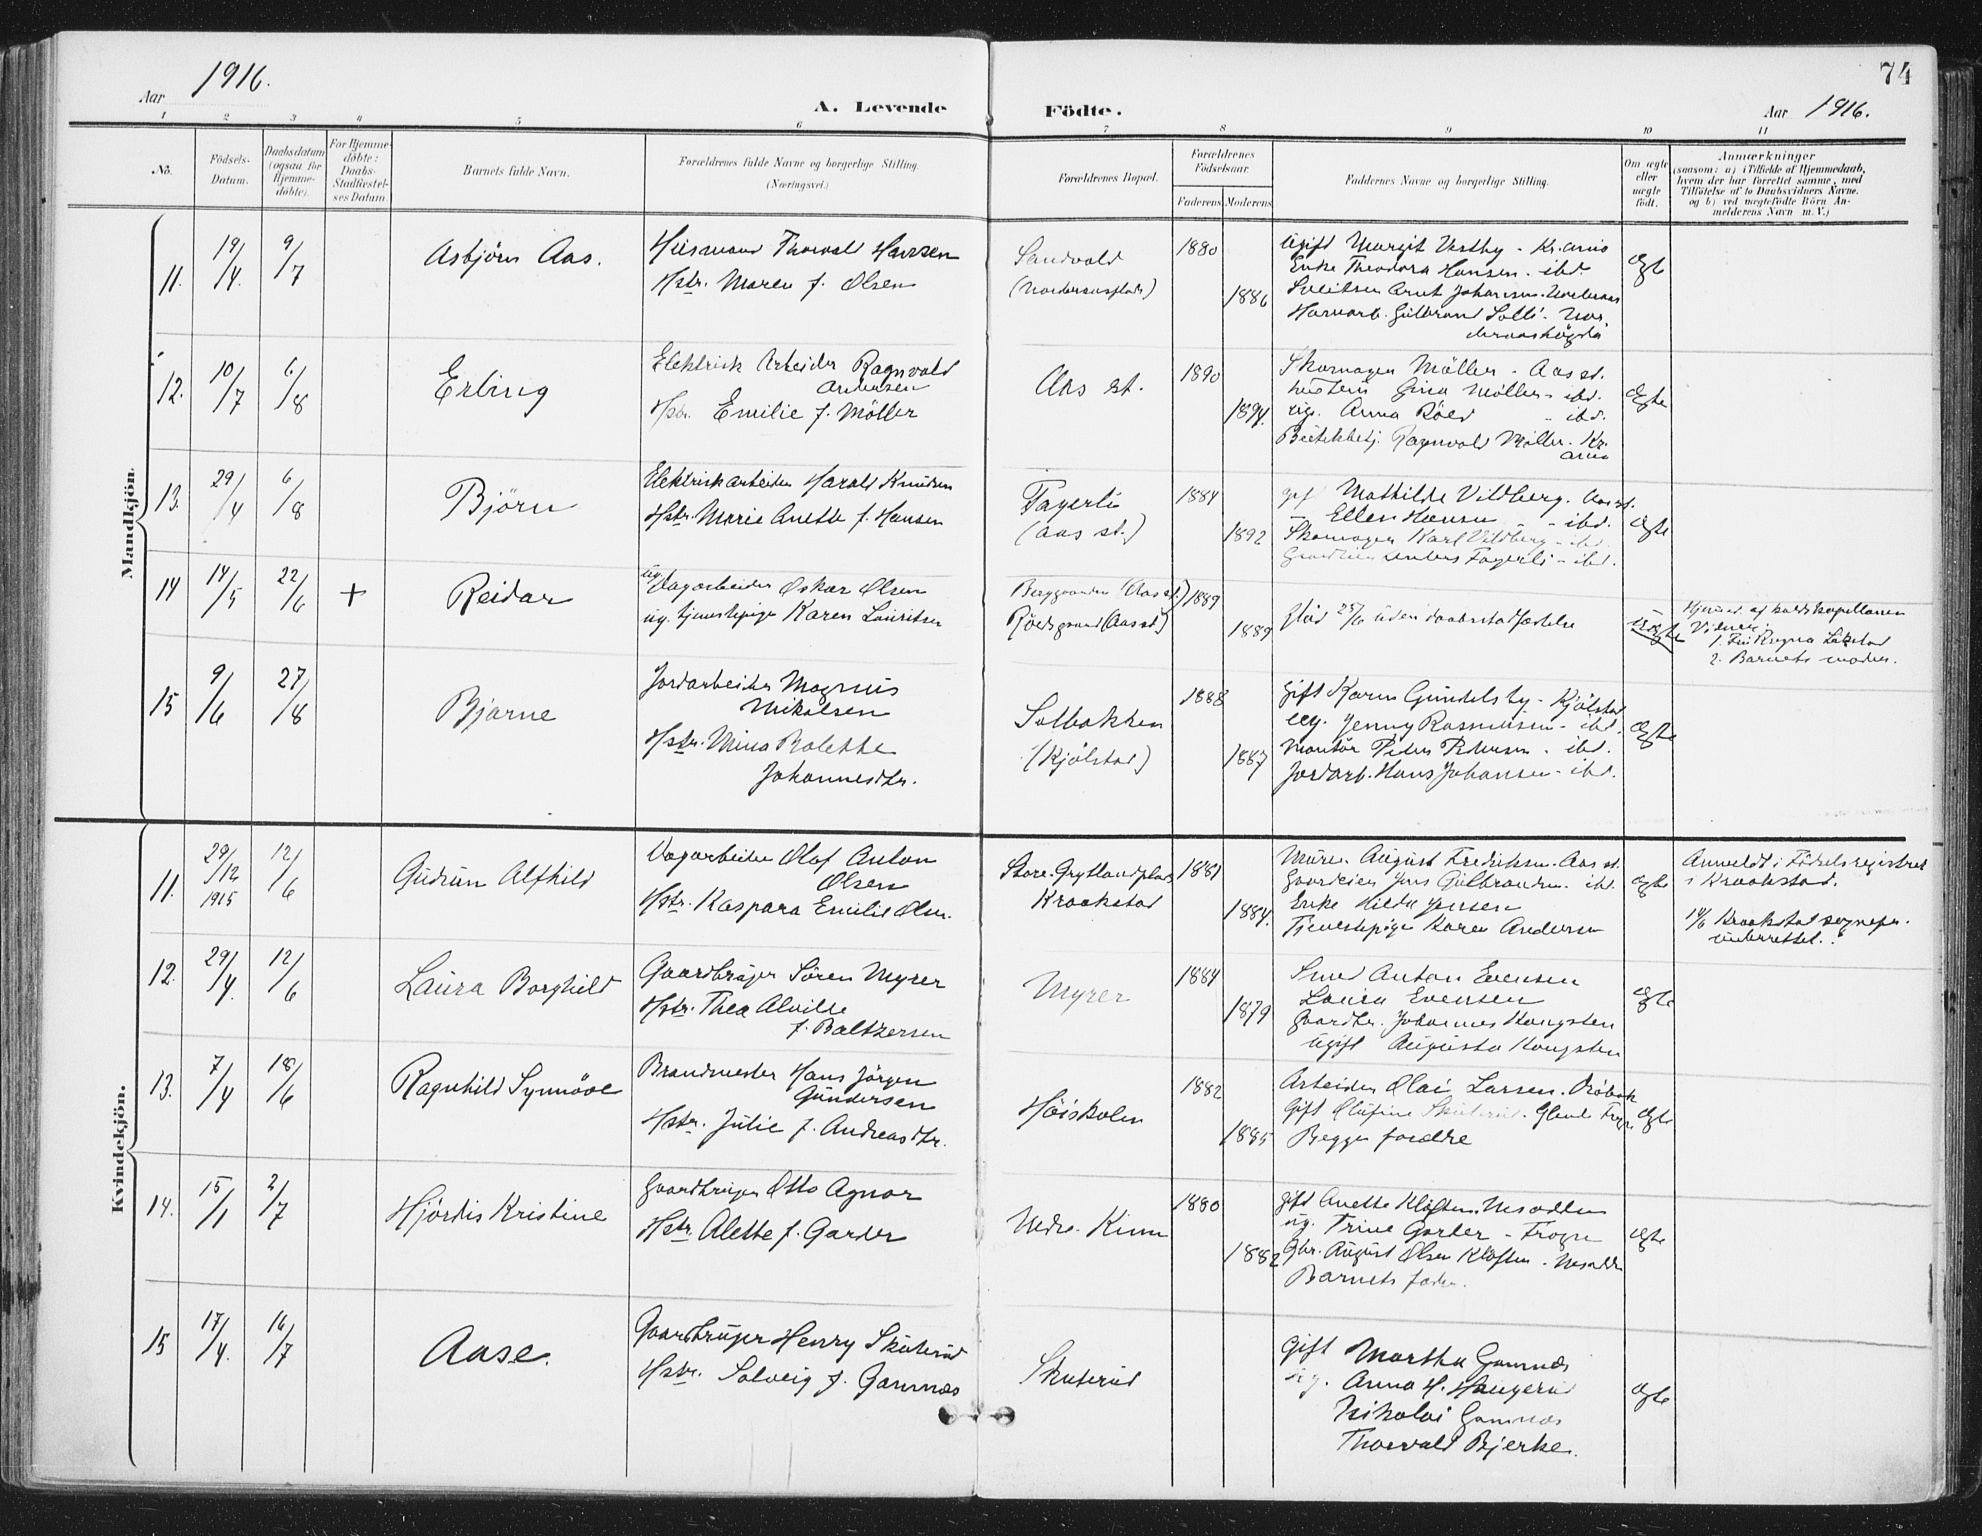 74
Aar 1916.
A. Levende Födte.
Aar 1916.
1 2 3 4 5 6 7 8 9 10 11
No.
Födsels-Datum.
Daabsdatum (ogsaa for Hjemme-döbte).
For Hjemme-döbte: Daabs-Stadfæstel-ses Datum.
Barnets fulde Navn.
Forældrenes fulde Navne og borgerlige Stilling.
(Næringsvei.)
Forældrenes Bopæl.
Forældrenes Födselsaar.
Faderens. Moderens.
Faddernes Navne og borgerlige Stilling.
Om ægte eller uægte födt.
Anmærkninger
(saasom: a) i Tilfælde af Hjemmedaab,
hvem der har forrettet samme, med
Tilföielse af to Daabsvidners Navne.
og b) ved uægtefödte Börn An-
melderens Navn m. V.)
Mandkjön.
11. 19/4. 9/7 Asbjörn Aas.
Thorvald Hansen
Hstr. Maren f. Olsen
Sandvold
1880
1886
Ugift Margit Vestby - Kr.ania
Enke Theodora Hansen - ibd
Arnt Johansen
Gulbrand Solli
ægte
12. 10/7 6/8 Erling
Elektrisk Arbeider Ragnvald
Andersen
Hstr. Emilie f. Möller
Aas st.
1890
1894.
Skomager Möller - Aas st.
Gina Möller - ibd.
ug. Anna Röed - ibd.
Ragnvald Möller. Kr.
ania
ægte
13. 29/4 6/8 Björn
Elektrisk arbeider Harald Knudsen
Hstr. Marie Anette f. Hansen
Fagerli
(Aas st.)
1884
1892
gift Mathilde Vildberg. Aas st.
Ellen Hansen - ibd.
Skomager Karl Vildberg - ibd.
Anders Fagerli - ibd.
ægte
14 14/5 22/6 + Reidar
ug. Dagarbeider Oskar Olsen
ug. tjenestepige Karen Lauritsen
(Aas st.)
Röedsgrund (Aas st.)
1889
1889
Död 25/6 uden daabsstadfæstelse
uægte
Hjemmed. af
Vidner:
2. Barnets moder.
15 9/6 27/8 Bjarne
Jordarbeider Magnus
Nikolsen
Hstr. Mina Bolette
Johannesdtr.
Solbakken
(Kjölstad)
1888
1887
gift Karen Gundelsby - Kjölstad
ug. Jenny Rasmussen - ibd.
Montör Peder Pedersen - ibd.
Jordarb. Hans Johansen - ibd.
ægte
Kvindekjön.
11. 29/12 1915 12/6 Gudrun Alfhild
Dagarbeider Olaf Anton
Olsen
Hstr. Kaspara Emilie Olsen.
Store Gryllandplads
Kraakstad
1881
1884.
Murer August Fredriksen - Aas st.
Gaardeier Jens Gulbrandsen - ibd.
Enke Hilda Jensen
Tjenestepige Karen Andersen
ægte
Anmeldt i Födselsregistret
i Kraakstad.
14/6 Kraakstad sognepr.
underrettet.
12. 29/4. 12/6 Laura Borghild
Gaardbruger Sören Myrer
Hstr. Thea Alvilde
f. Baltzersen
Myrer
1884
1879
Smed Anton Evensen
Laura Evensen
Gaardbr. Johannes Kongsten
Ugift Augusta Kongsten
ægte
13. 7/4 18/6 Ragnhild Synnöve
Brandmester Hans Jörgen
Gundersen
Hstr. Julie f. Andreasdtr.
Höiskolen
1882
1885
Arbeider Olai Larsen. Dröbak
Gift Olufine
Begge forældre
ægte
14. 15/1 2/7 Hjördis Kristine
Gaardbruger Otto Agnor
Hstr. Alette f. Garder
Nedre Kinn
1880
1882
gift Anette Klöften. Nesodden
ug. Trine Garder - Frogn
Gbr. August Olsen Klöften. Nesodden
Barnets fader.
ægte
15 17/4. 16/7 Aase.
Gaardbruger Henry Skuterud
Hstr. Solveig f. Gamnæs
Skuterud
Gift Martha Gamnæs
ug. Anna H. Haugerud
Nikolai Gamnæs
Thorvald Bjerke.
ægte